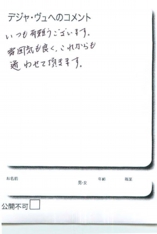 デジャ・ヴュへのコメント
いつも有難うございます。
雰囲気も良く、これからも
通わせて頂きます。
お名前 男女 年齢 職業
公開不可